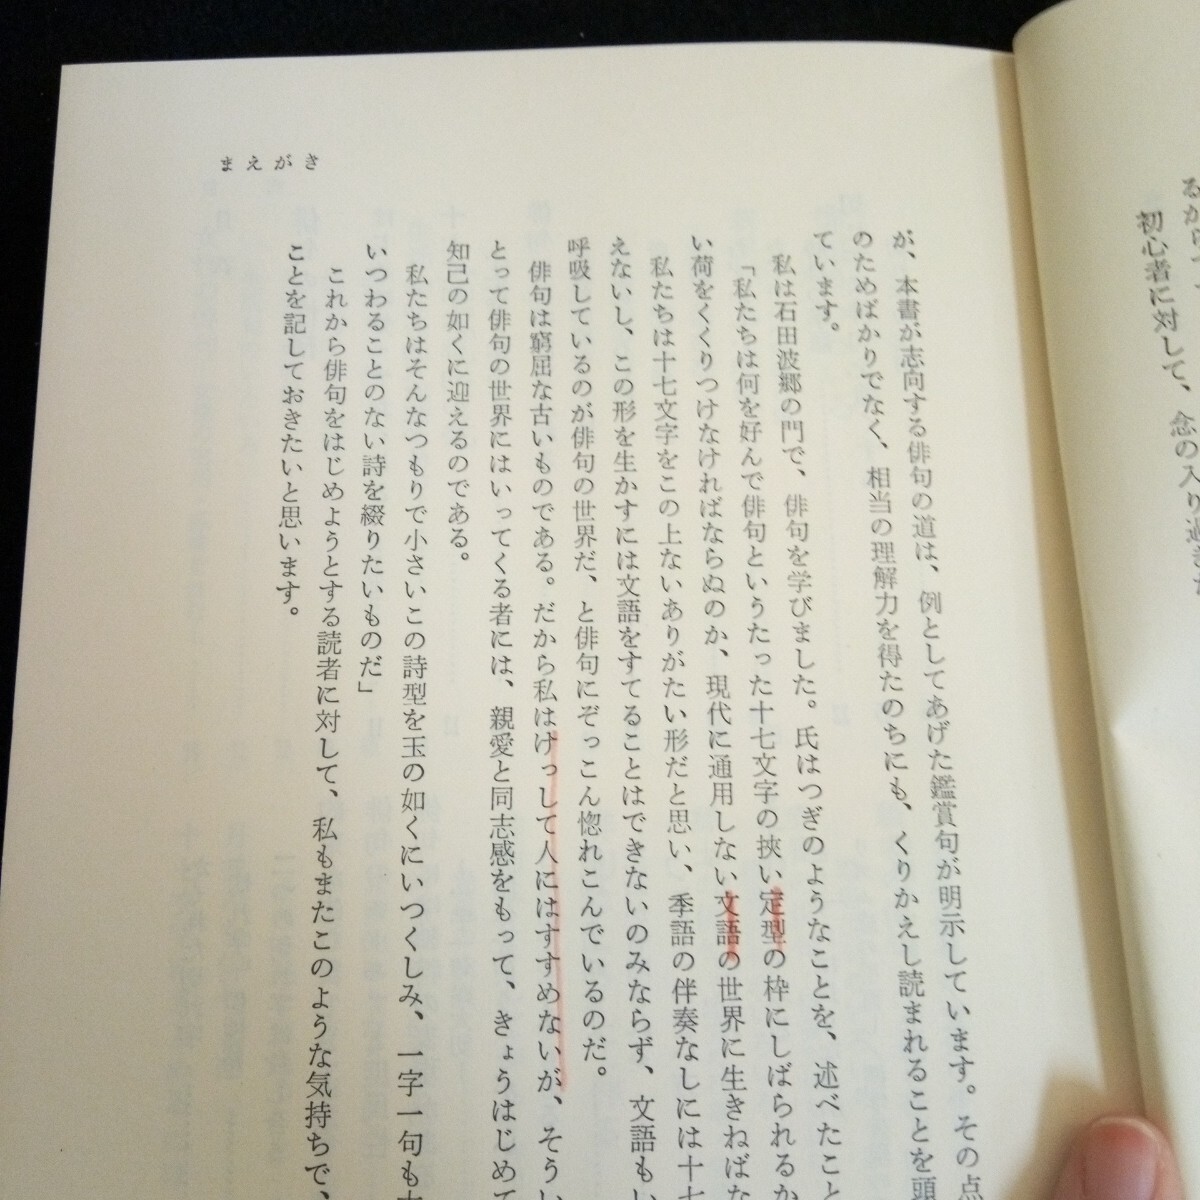 るから、
初心者に対して、念の入り過ぎた
まえがき
が、本書が志向する俳句の道は、例としてあげた鑑賞句が明示しています。その点
のためばかりでなく、相当の理解力を得たのちにも、くりかえし読まれることを頭
ています。
私は石田波郷の門で、俳句を学びました。氏はつぎのようなことを、述べたこと
「私たちは何を好んで俳句というたった十七文字の挾い定型の枠にしばられるか
い荷をくくりつけなければならぬのか、現代に通用しない文語の世界に生きねばな
私たちは十七文字をこの上ないありがたい形だと思い、季語の伴奏なしには十七
えないし、この形を生かすには文語をすてることはできないのみならず、文語もい
呼吸しているのが俳句の世界だ、と俳句にぞっこん惚れこんでいるのだ。
俳句は窮屈な古いものである。だから私はけっして人にはすすめないが、そうい
とって俳句の世界にはいってくる者には、親愛と同志感をもって、きょうはじめて
知己の如くに迎えるのである。
私たちはそんなつもりで小さいこの詩型を玉の如くにいつくしみ、一字一句も
いつわることのない詩を綴りたいものだ」
これから俳句をはじめようとする読者に対して、私もまたこのような気持ちで、
ことを記しておきたいと思います。